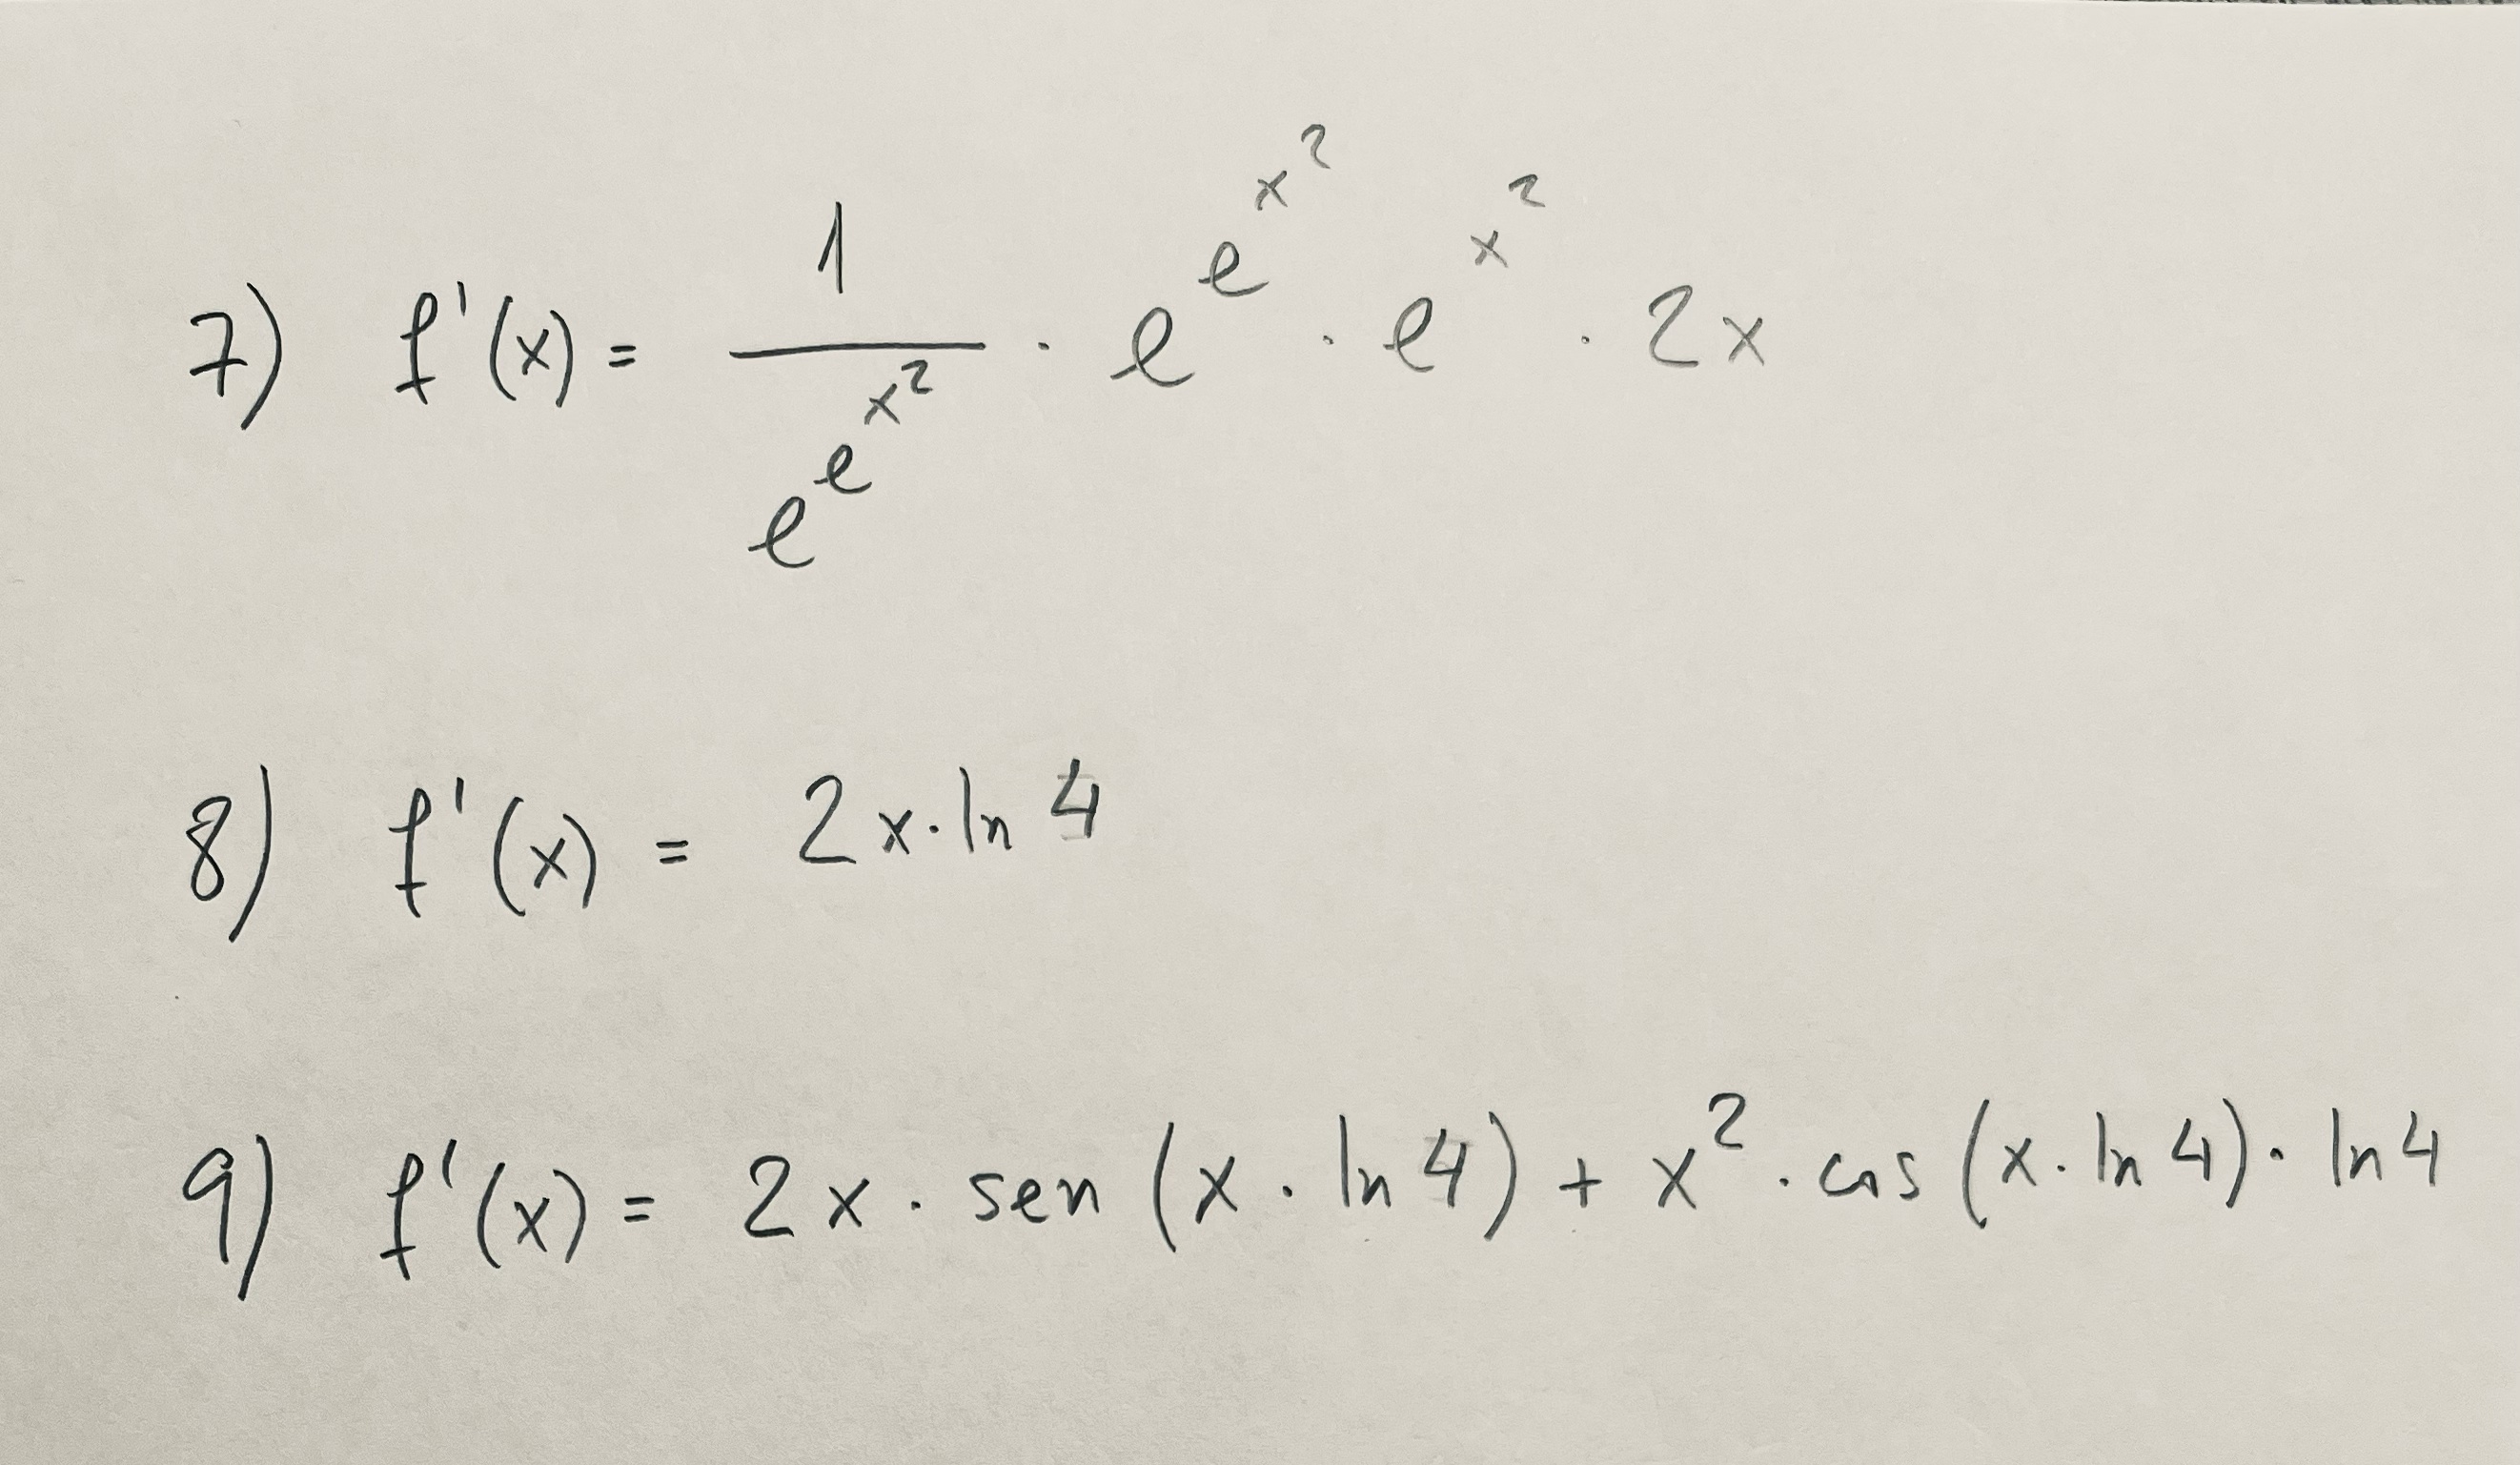 7) f'(x) = 1/e^e^x^2 · e^e^x^2 · e^x^2 · 2x
8) f'(x) = 2x · ln 4
9) f'(x) = 2x · sen (x · ln 4) + x^2 · cos (x · ln 4) · ln 4